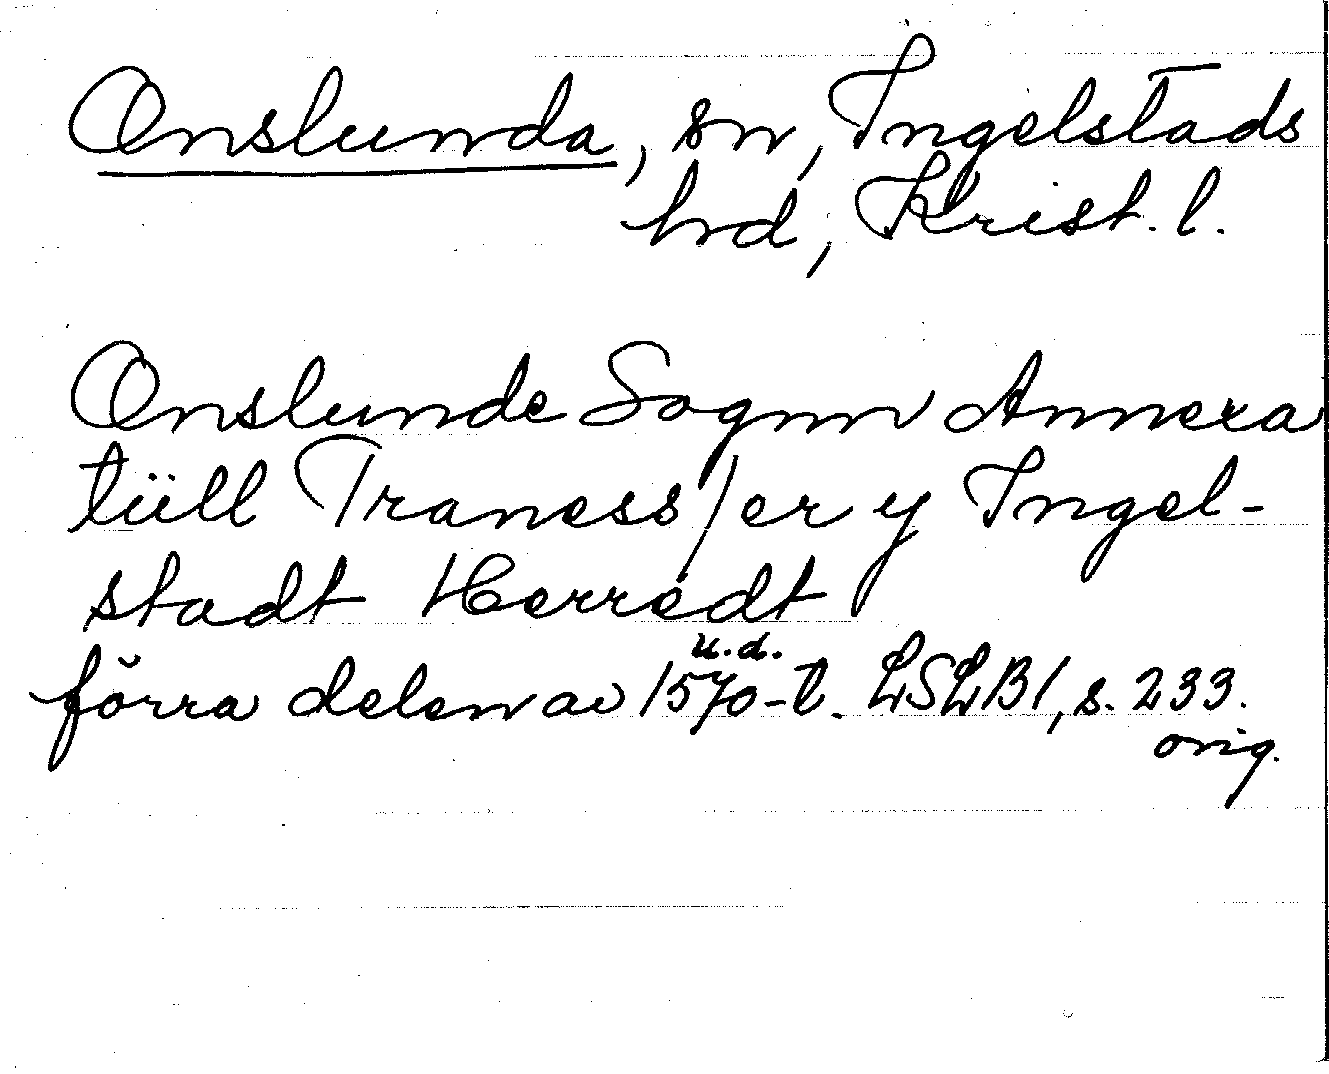 Onslunda, sn, Ingelstads
hd, Krist. l.
Onslunde Sognn Annexa
tüll Traness/er y Ingel-
stadt Herredt
u.d.
förra delen av 1570-t. LSLB1, s. 233.
orig.